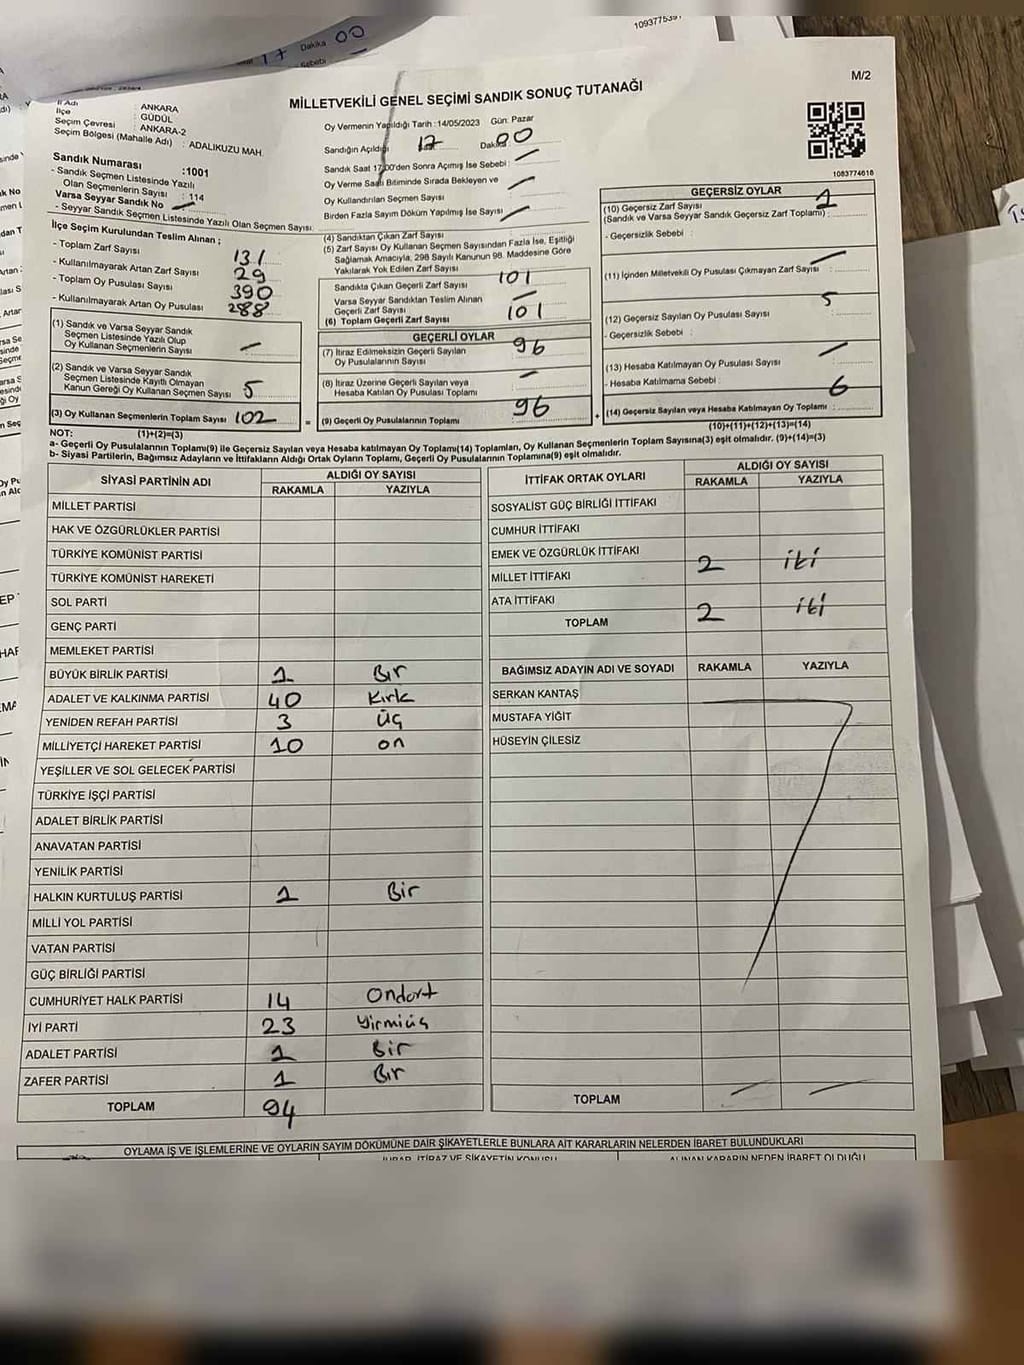 109377539
17 Dakika 00
M/2
MİLLETVEKİLİ GENEL SEÇİMİ SANDIK SONUÇ TUTANAĞI
İl Adı : ANKARA
İlçe : GÜDÜL
Seçim Çevresi : ANKARA-2
Seçim Bölgesi (Mahalle Adı) : ADALIKUZU MAH.
Sandık Numarası :1001
- Sandık Seçmen Listesinde Yazılı
Olan Seçmenlerin Sayısı : 114
Varsa Seyyar Sandık No
- Seyyar Sandık Seçmen Listesinde Yazılı Olan Seçmen Sayısı:
İlçe Seçim Kurulundan Teslim Alınan ;
- Toplam Zarf Sayısı 131
- Kullanılmayarak Artan Zarf Sayısı 29
- Toplam Oy Pusulası Sayısı 390
- Kullanılmayarak Artan Oy Pusulası 288
(1) Sandık ve Varsa Seyyar Sandık
Seçmen Listesinde Yazılı Olup
Oy Kullanan Seçmenlerin Sayısı —
(2) Sandık ve Varsa Seyyar Sandık
Seçmen Listesinde Kayıtlı Olmayan
Kanun Gereği Oy Kullanan Seçmen Sayısı 5
(3) Oy Kullanan Seçmenlerin Toplam Sayısı 102
(1)+(2)=(3)
Oy Vermenin Yapıldığı Tarih :14/05/2023 Gün: Pazar
Sandığın Açıldığı 17 Dakika 00
Sandık Saat 17:00'den Sonra Açımış İse Sebebi : —
Oy Verme Saati Bitiminde Sırada Bekleyen ve
Oy Kullandırılan Seçmen Sayısı —
Birden Fazla Sayım Döküm Yapılmış İse Sayısı —
(4) Sandıktan Çıkan Zarf Sayısı
(5) Zarf Sayısı Oy Kullanan Seçmen Sayısından Fazla İse, Eşitliği
Sağlamak Amacıyla, 298 Sayılı Kanunun 98. Maddesine Göre
Yakılarak Yok Edilen Zarf Sayısı
Sandıkta Çıkan Geçerli Zarf Sayısı 101
Varsa Seyyar Sandıktan Teslim Alınan
Geçerli Zarf Sayısı —
(6) Toplam Geçerli Zarf Sayısı 101
GEÇERLİ OYLAR
(7) İtiraz Edilmeksizin Geçerli Sayılan
Oy Pusulalarının Sayısı 96
(8) İtiraz Üzerine Geçerli Sayılan veya
Hesaba Katılan Oy Pusulası Toplamı —
(9) Geçerli Oy Pusulalarının Toplamı 96
1083774618
GEÇERSİZ OYLAR
(10) Geçersiz Zarf Sayısı 1
(Sandık ve Varsa Seyyar Sandık Geçersiz Zarf Toplamı) :
- Geçersizlik Sebebi :
(11) İçinden Milletvekili Oy Pusulası Çıkmayan Zarf Sayısı —
(12) Geçersiz Sayılan Oy Pusulası Sayısı 5
- Geçersizlik Sebebi :
(13) Hesaba Katılmayan Oy Pusulası Sayısı —
- Hesaba Katılmama Sebebi :
(14) Geçersiz Sayılan veya Hesaba Katılmayan Oy Toplamı : 6
(10)+(11)+(12)+(13)=(14)
NOT:
a- Geçerli Oy Pusulalarının Toplamı(9) ile Geçersiz Sayılan veya Hesaba Katılmayan Oy Toplamı(14) Toplamları, Oy Kullanan Seçmenlerin Toplam Sayısına(3) eşit olmalıdır. (9)+(14)=(3)
b- Siyasi Partilerin, Bağımsız Adayların ve İttifakların Aldığı Ortak Oyların Toplamı, Geçerli Oy Pusulalarının Toplamına(9) eşit olmalıdır.
SİYASİ PARTİNİN ADI ALDIĞI OY SAYISI
RAKAMLA YAZIYLA
MİLLET PARTİSİ
HAK VE ÖZGÜRLÜKLER PARTİSİ
TÜRKİYE KOMÜNİST PARTİSİ
TÜRKİYE KOMÜNİST HAREKETİ
SOL PARTİ
GENÇ PARTİ
MEMLEKET PARTİSİ
BÜYÜK BİRLİK PARTİSİ 1 Bir
ADALET VE KALKINMA PARTİSİ 40 Kırk
YENİDEN REFAH PARTİSİ 3 üç
MİLLİYETÇİ HAREKET PARTİSİ 10 on
YEŞİLLER VE SOL GELECEK PARTİSİ
TÜRKİYE İŞÇİ PARTİSİ
ADALET BİRLİK PARTİSİ
ANAVATAN PARTİSİ
YENİLİK PARTİSİ
HALKIN KURTULUŞ PARTİSİ 1 Bir
MİLLİ YOL PARTİSİ
VATAN PARTİSİ
GÜÇ BİRLİĞİ PARTİSİ
CUMHURİYET HALK PARTİSİ 14 Ondört
İYİ PARTİ 23 Yirmiüç
ADALET PARTİSİ 1 Bir
ZAFER PARTİSİ 1 Bir
TOPLAM 94
İTTİFAK ORTAK OYLARI ALDIĞI OY SAYISI
RAKAMLA YAZIYLA
SOSYALİST GÜÇ BİRLİĞİ İTTİFAKI
CUMHUR İTTİFAKI
EMEK VE ÖZGÜRLÜK İTTİFAKI
MİLLET İTTİFAKI 2 iki
ATA İTTİFAKI
TOPLAM 2 iki
BAĞIMSIZ ADAYIN ADI VE SOYADI RAKAMLA YAZIYLA
SERKAN KANTAŞ
MUSTAFA YİĞİT
HÜSEYİN ÇİLESİZ
TOPLAM — —
OYLAMA İŞ VE İŞLEMLERİNE VE OYLARIN SAYIM DÖKÜMÜNE DAİR ŞİKAYETLERLE BUNLARA AİT KARARLARIN NELERDEN İBARET BULUNDUKLARI
İTİRAZ VE ŞİKAYETİN KONUSU ALINAN KARARIN NEDEN İBARET OLDUĞU